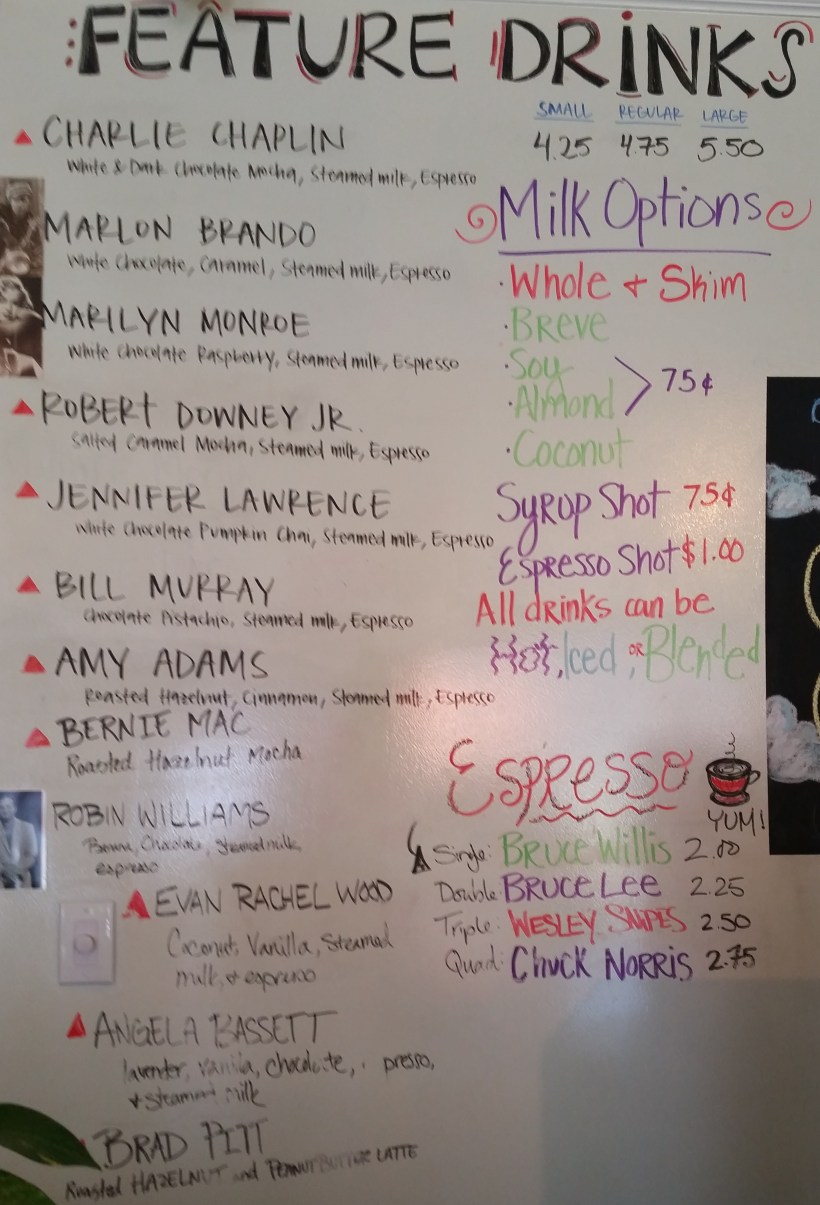 FEATURE DRINKS
SMALL REGULAR LARGE
4.25 4.75 5.50
CHARLIE CHAPLIN
White & Dark Chocolate Mocha, Steamed milk, Espresso
MARLON BRANDO
White Chocolate, Caramel, Steamed milk, Espresso
MARILYN MONROE
White Chocolate Raspberry, Steamed milk, Espresso
ROBERT DOWNEY JR.
Salted Caramel Mocha, Steamed milk, Espresso
JENNIFER LAWRENCE
White Chocolate Pumpkin Chai, Steamed milk, Espresso
BILL MURRAY
Chocolate Pistachio, Steamed milk, Espresso
AMY ADAMS
Roasted Hazelnut, Cinnamon, Steamed milk, Espresso
BERNIE MAC
Roasted Hazelnut Mocha
ROBIN WILLIAMS
Chocolate, Steamed milk,
espresso
EVAN RACHEL WOOD
Coconut, Vanilla, Steamed
milk, + espresso
ANGELA BASSETT
lavender, vanilla, chocolate, presso,
+ steamed milk
BRAD PITT
Roasted HAZELNUT and PEANUT BUTTER LATTE
Milk Options
·Whole + Skim
·Breve
·Soy
·Almond > 75¢
·Coconut
Syrup Shot 75¢
Espresso Shot $1.00
All drinks can be
Hot, Iced, OR Blended
Espresso
YUM!
Single: BRUCE WILLIS 2.00
Double: BRUCE LEE 2.25
Triple: WESLEY SNIPES 2.50
Quad: CHUCK NORRIS 2.75